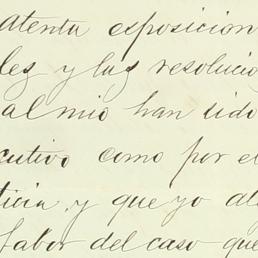 atenta exposicion
les y las resolucio
al mio han sido
cutivo como por el
ticia, y que yo al
favor del caso que